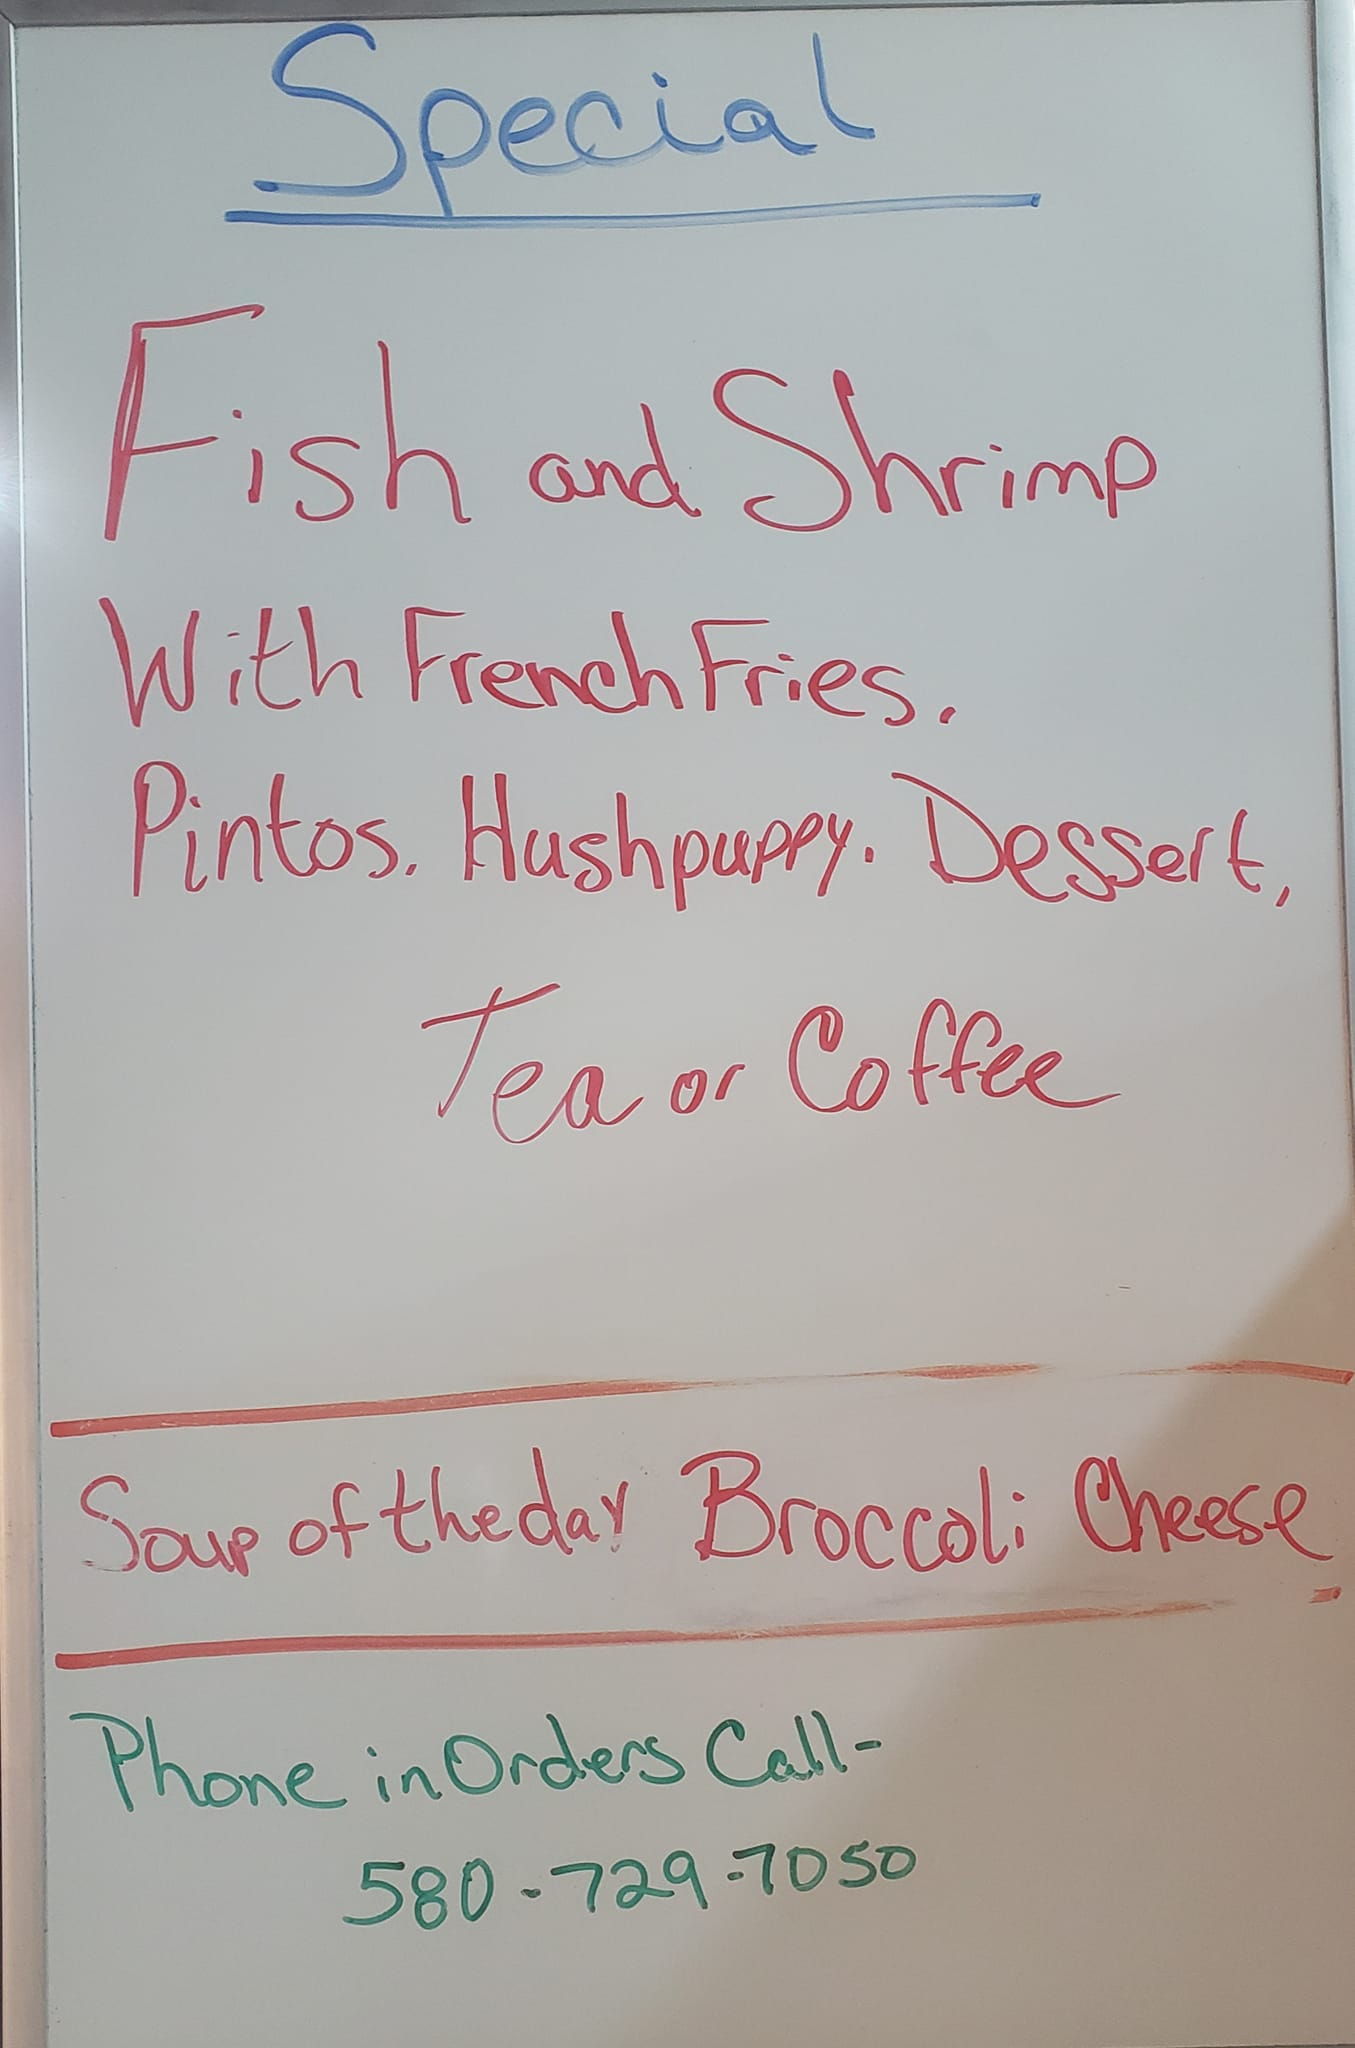 Special
Fish and Shrimp
With French Fries.
Pintos. Hushpuppy. Dessert,
Tea or Coffee
Soup of the day Broccoli Cheese
Phone in Orders Call-
580-729-7050